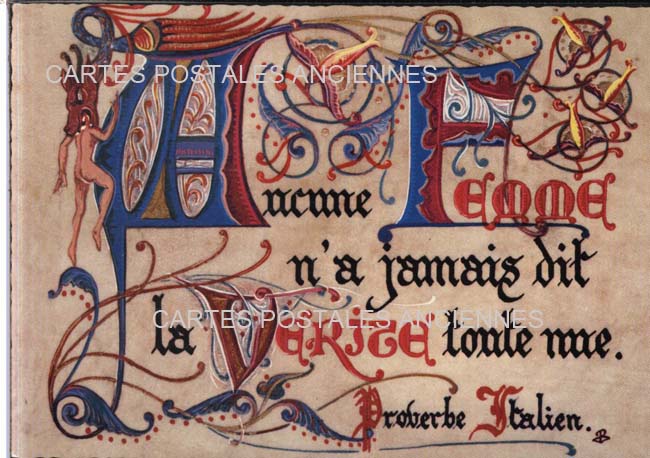 CARTES POSTALES ANCIENNES
Aucune FEMME
n'a jamais dit
la VERITE toute nue.
CARTES POSTALES ANCIENNES
Proverbe Italien.